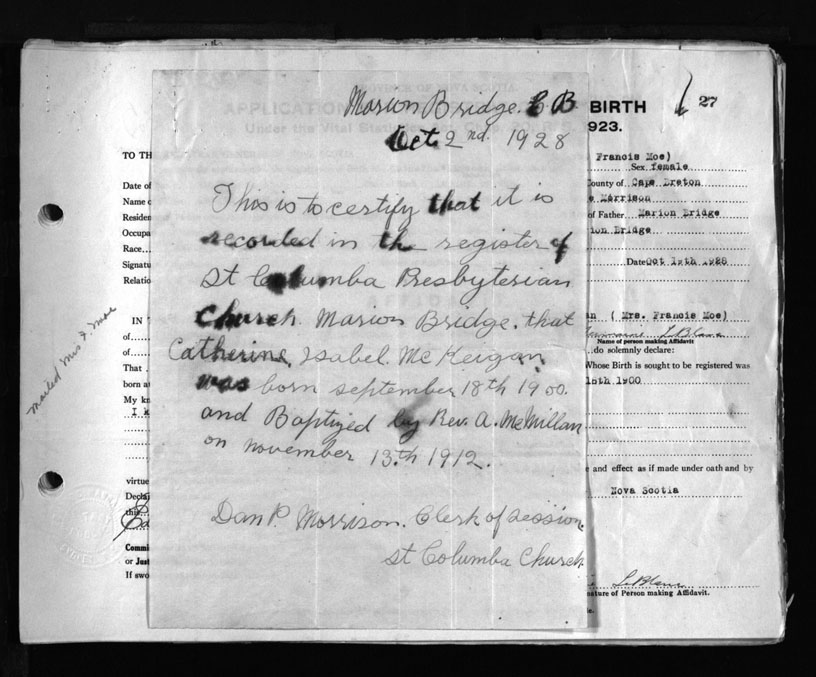 Marion Bridge. C B
Oct 2nd. 1928
This is to certify that it is
recorded in the register of
St Columba Presbyterian
Church. Marion Bridge. that
Catherine, Isabel. McKeigan
was born september 18th 1900.
and Baptized by Rev. A. McMillan
on november 13th 1912.
Dan P. Morrison. Clerk of Session
St Columba Church
PROVINCE OF NOVA SCOTIA
APPLICATION BIRTH 27
Under the Vital 1923.
TO TH Francis Moe)
Sex female
Date of County of Cape Breton
Name Morrison
Residen of Father Marion Bridge
Occupa ion Bridge
Race
Signatu Date Oct 19th 1928
Relatio
IN ( Mrs. Francis Moe)
of LeBlanc
Name of person making Affidavit
of do solemnly declare:
That Whose Birth is sought to be registered was
born at 18th 1900
My kn
I k
e and effect as if made under oath and by
virtue
Decla Nova Scotia
this
Commi
or Just LeBlanc
If swo nature of Person making Affidavit.
mailed Mrs F. Moe